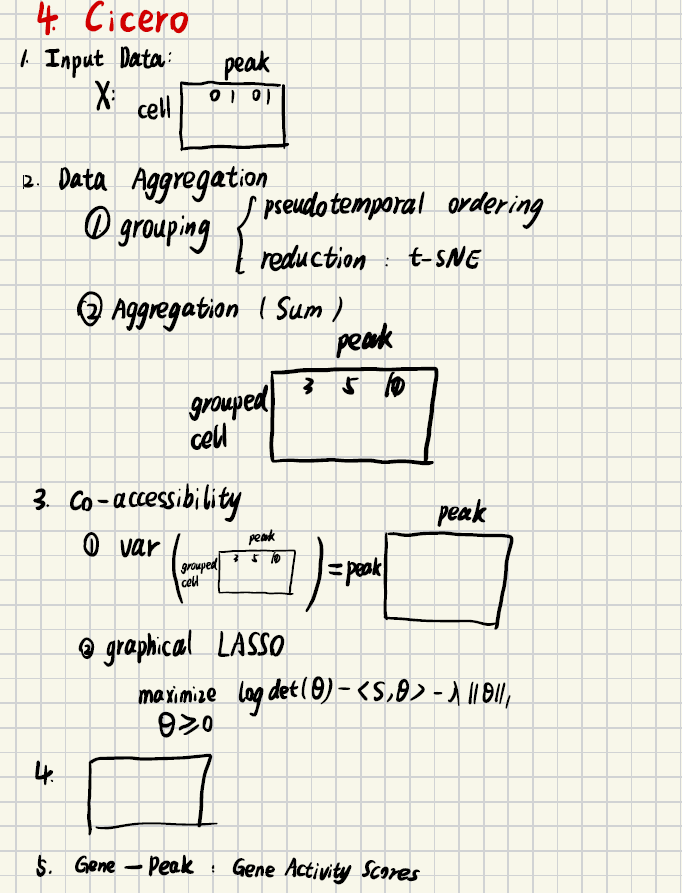 4. Cicero
1. Input Data:
peak
X: cell 0 1 0 1
2. Data Aggregation
① grouping { pseudotemporal ordering
reduction : t-SNE
② Aggregation (Sum)
peak
3 5 10
grouped
cell
3. Co-accessibility
peak
① var ( grouped cell peak 3 5 10 ) = peak
② graphical LASSO
maximize log det(θ) - <S,θ> - λ ||θ||₁
θ ⩾ 0
4.
5. Gene - Peak : Gene Activity Scores